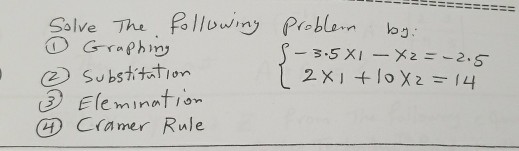 Solve The following Problem by:
① Graphing
② Substitution
③ Elemination
④ Cramer Rule
{ -3.5 X1 - X2 = -2.5
2 X1 + 10 X2 = 14